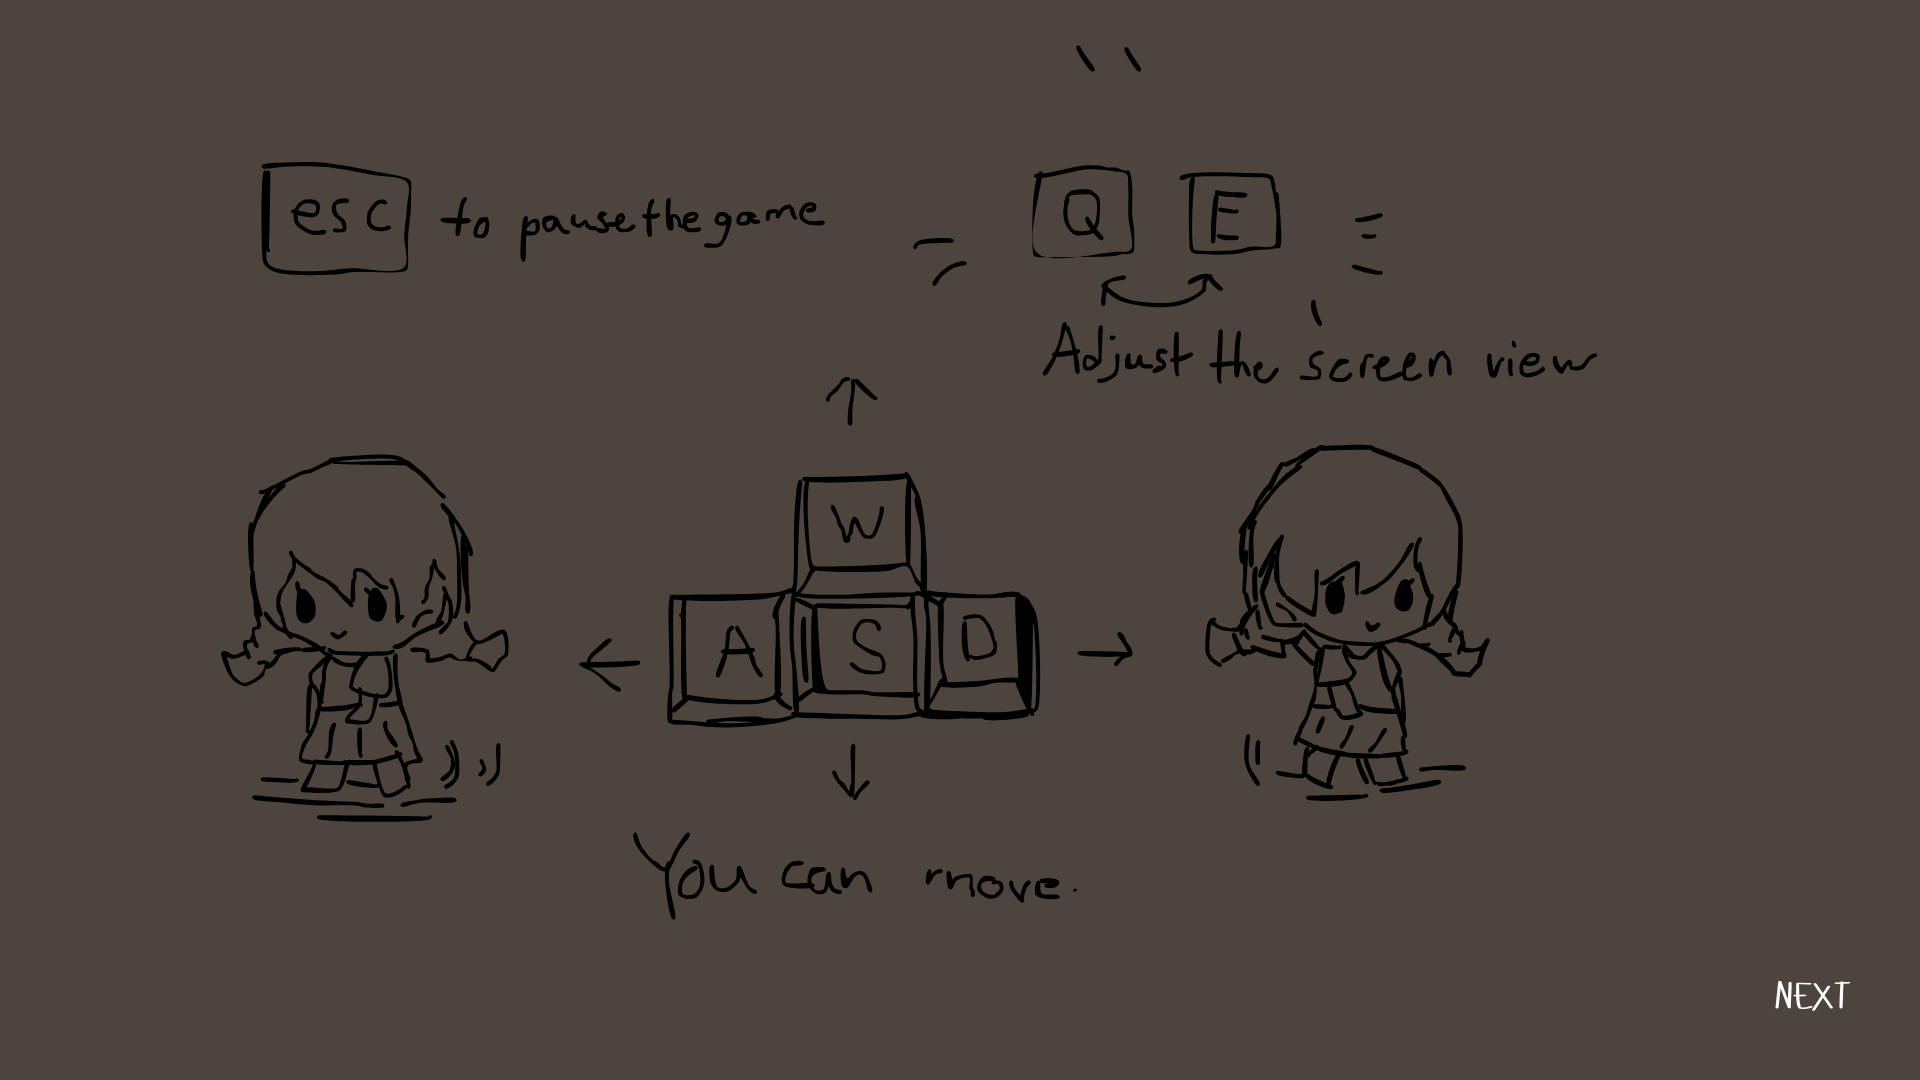 esc to pause the game
Q E
Adjust the screen view
W
A S D
You can move.
NEXT